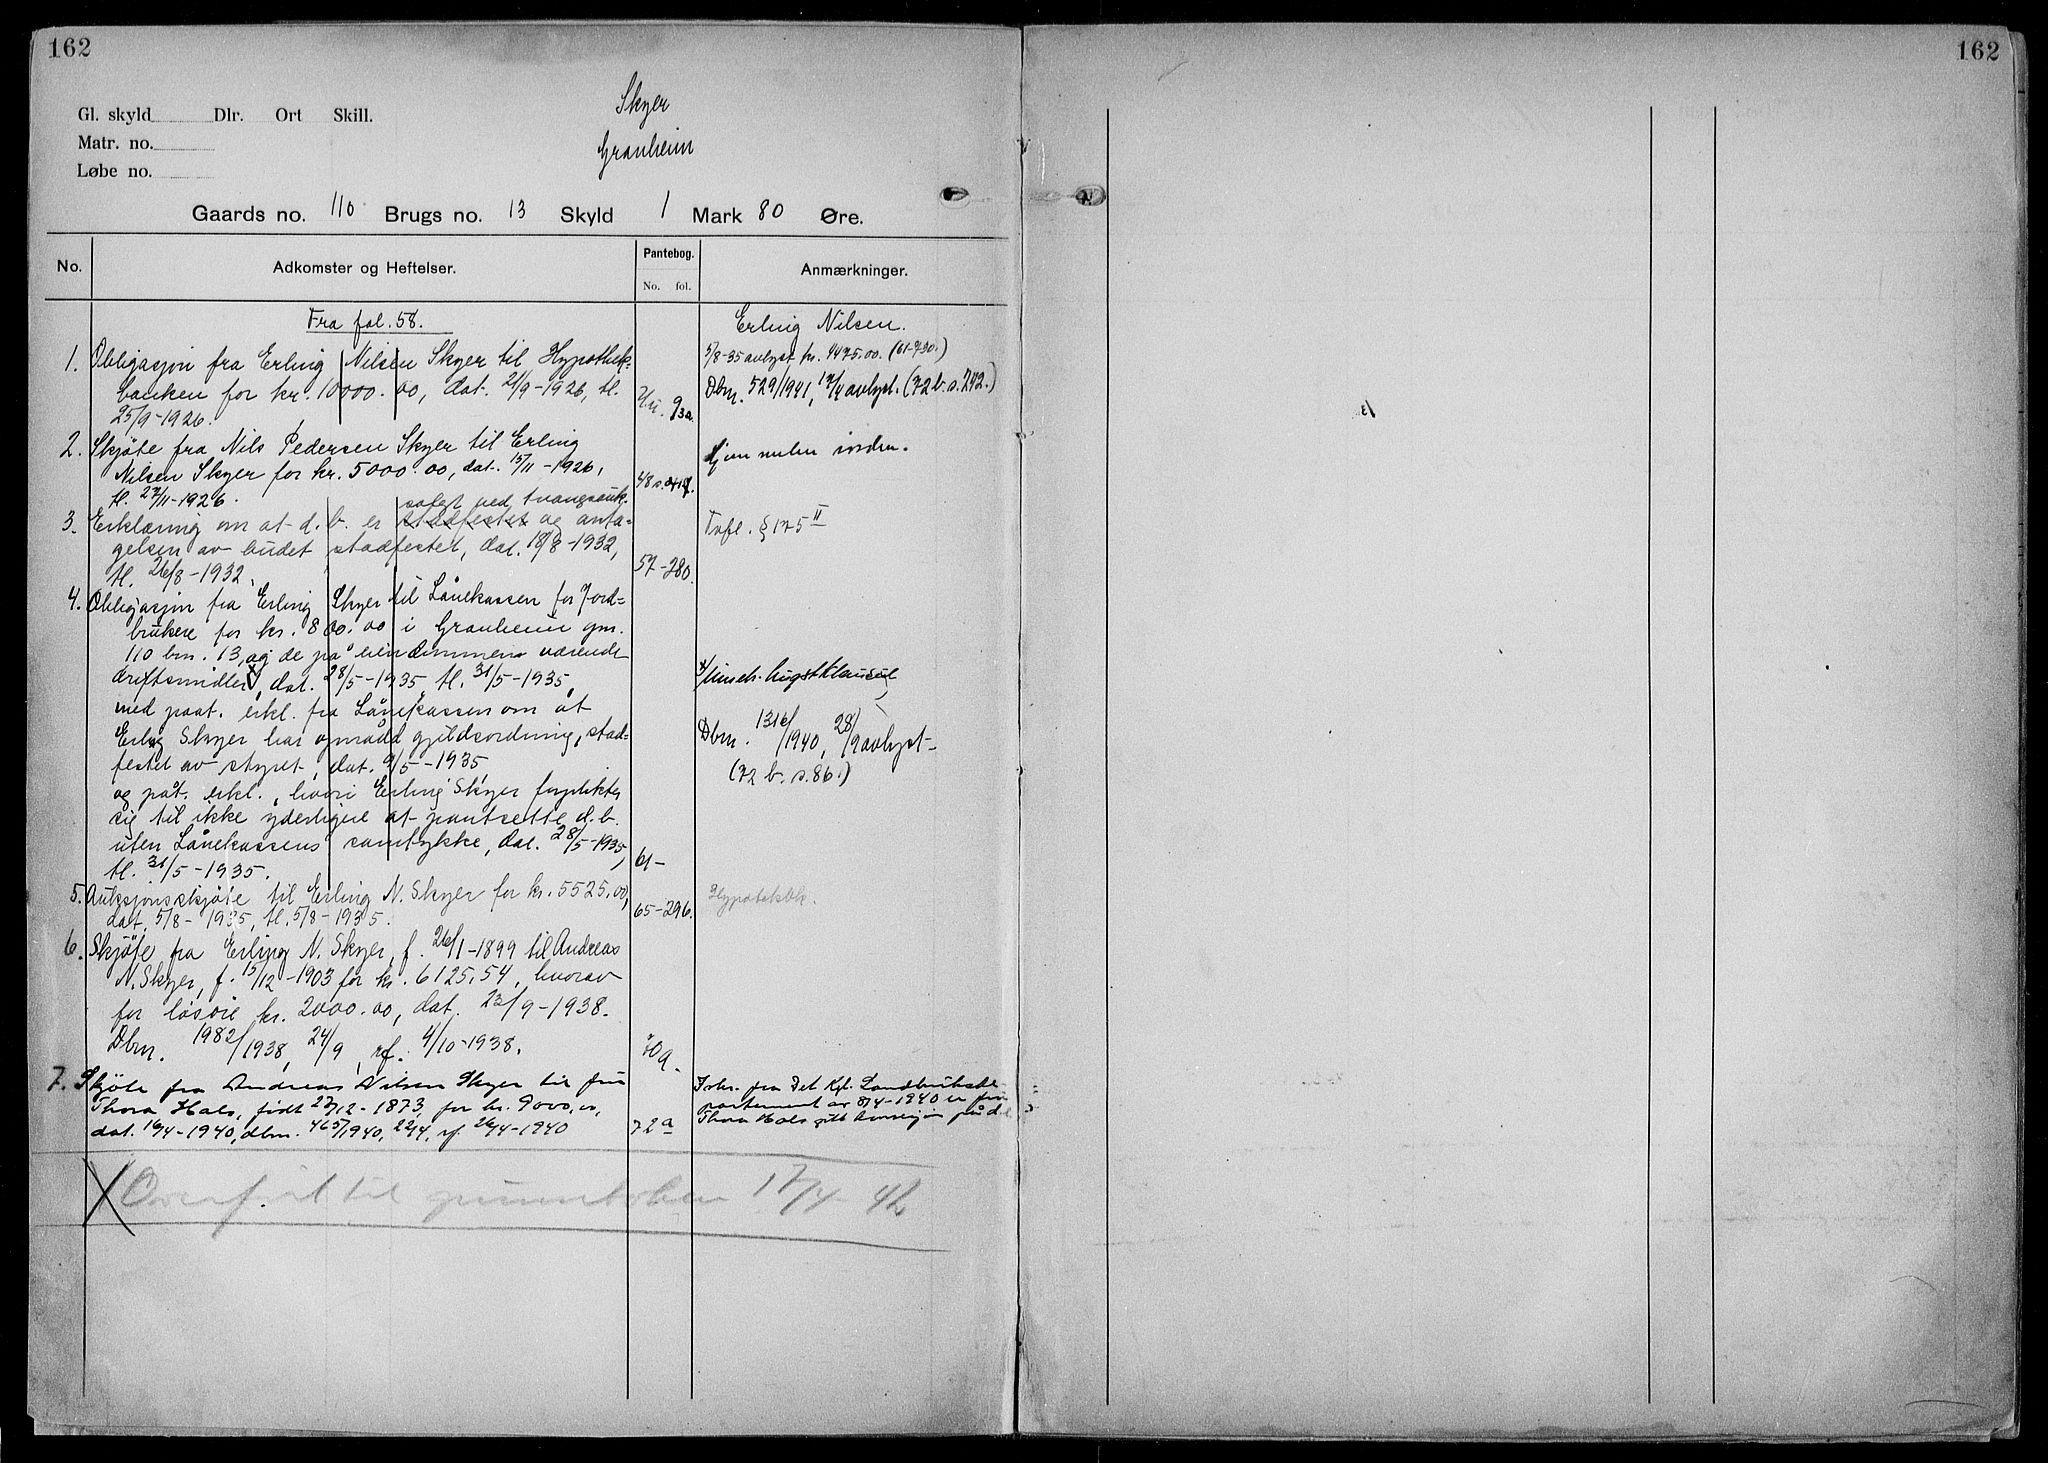 162
162
Skyer
Granheim
Gl. skyld Dlr. Ort Skill.
Matr. no.
Løbe no.
Gaards no. 110 Brugs no. 13 Skyld 1 Mark 80 Øre.
No. Adkomster og Heftelser. Pantebog. No. fol. Anmærkninger.
Fra fol. 58.
Erling Nilsen.
1. Obligasjon fra Erling Nilsen Skyer til Hypothek-
banken for kr. 10000.00, dat. 21/9-1926, tl.
25/9-1926.
5/8-35 avlyst kr. 4475.00. (61-730.)
Dbnr. 529/1941, 17/4 avlyst. (72 b. s. 242.)
2. Skjöte fra Nils Pedersen Skyer til Erling
Nilsen Skyer for kr. 5000.00, dat. 15/11-1926,
tl. 27/11-1926.
3. Erklæring om at d. b. er solgt ved tvangsauk. stadfestet og anta-
gelsen av budet stadfestet, dat. 18/8-1932,
tl. 26/8-1932.
57-280.
Tvfl. § 175 II
4. Obligasjon fra Erling Skyer til Lånekassen for Jord-
brukere for kr. 800.00 i Granheim gnr.
110 bnr. 13, og de på eiendommen værende
driftsmidler, dat. 28/5-1935, tl. 31/5-1935,
med paat. erkl. fra Lånekassen om at
Erling Skyer har opnådd gjeldsordning, stad-
festet av styret, dat. 9/5-1935
og påt. erkl., hvori Erling Skyer forplikter
sig til ikke yderligere at pantsette d. b.
uten Lånekassens samtykke, dat. 28/5-1935,
tl. 31/5-1935.
61-
hugstklausul
Dbnr. 1316/1940, 28/9 avlyst
(72 b. s. 86.)
5. Auksjonsskjøte til Erling N. Skyer for kr. 5525.00,
dat. 5/8-1935, tl. 5/8-1935.
65-296.
Hypotekbk.
6. Skjöte fra Erling N. Skyer, f. 26/1-1899 til Andreas
N. Skyer, f. 15/12-1903 for kr. 6125.54, hvorav
for løsøre kr. 2000.00, dat. 23/9-1938.
Dbnr. 1982/1938, 24/9, rf. 4/10-1938.
70 a.
7. Skjöte fra Andreas Nilsen Skyer til fru
Thora Hals, født 27/12-1873, for kr. 9000.00,
dat. 16/4-1940, dbnr. 465/1940, 22/4, rf. 26/4-1940
72 a
fra Det Kgl. Landbruksde-
partement av 8/4-1940 er fru
Thora Hals gitt konsesjon på d.
Overført til grunnboken 17/4-42